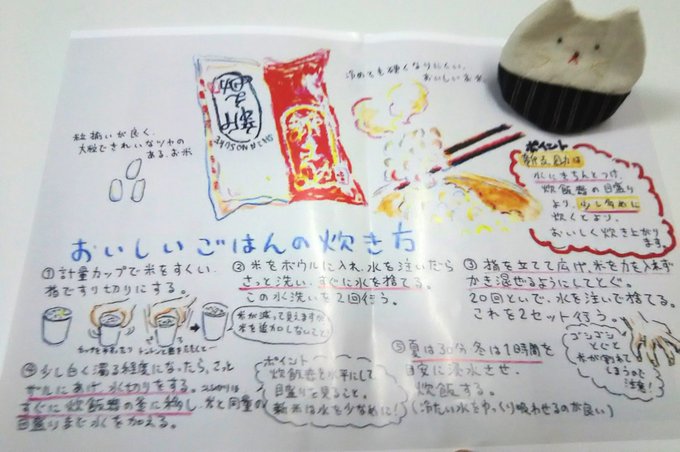 粒揃いが良く、
大粒できれいなツヤの
ある、お米
冷めても硬くなりにくい、
おいしいお米
ポイント
水にきちんとつけ、
炊飯器の目盛り
より、少し多めに
炊くとより、
おいしく炊き上がり
ます。
おいしいごはんの炊き方
①計量カップで米をすくい、
指ですり切りにする。
米が減って見えますが
米を追加しないこと!
②米をボウルに入れ、水を注いだら
さっと洗い、すぐに水を捨てる。
この水洗いを2回行う。
③指を立てて広げ、米を力を入れず
かき混ぜるようにしてとぐ。
20回といで、水を注いで捨てる。
これを2セット行う。
ゴシゴシ
とぐと
米が割れて
しまうので
注意!
④少し白く濁る程度になったら、さっと
ザルにあげ、水切りをする。水切り後は
すぐに炊飯器の釜に移し、米と同量の
目盛りまで水を加える。
ポイント
炊飯器を水平にして
目盛りを見ること。
新米は水を少なめに!
⑤夏は30分冬は1時間を
目安に浸水させ、
炊飯する。
(冷たい水をゆっくり吸わせるのが良い)